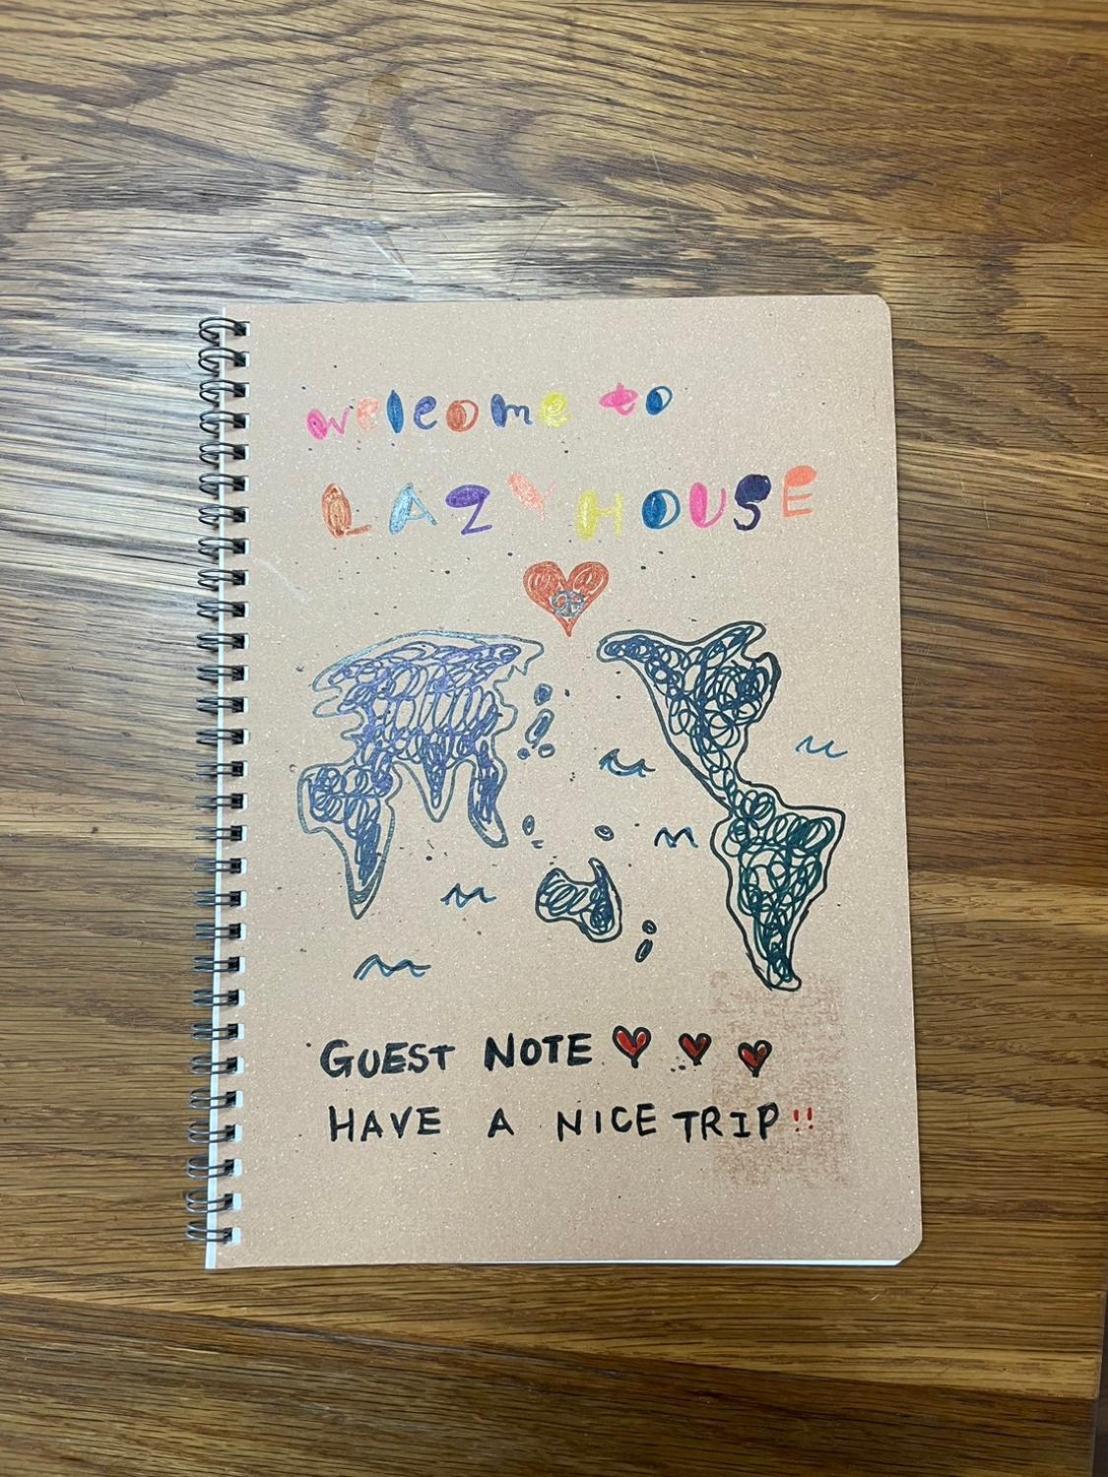 welcome to
LAZY HOUSE
GUEST NOTE
HAVE A NICE TRIP!!